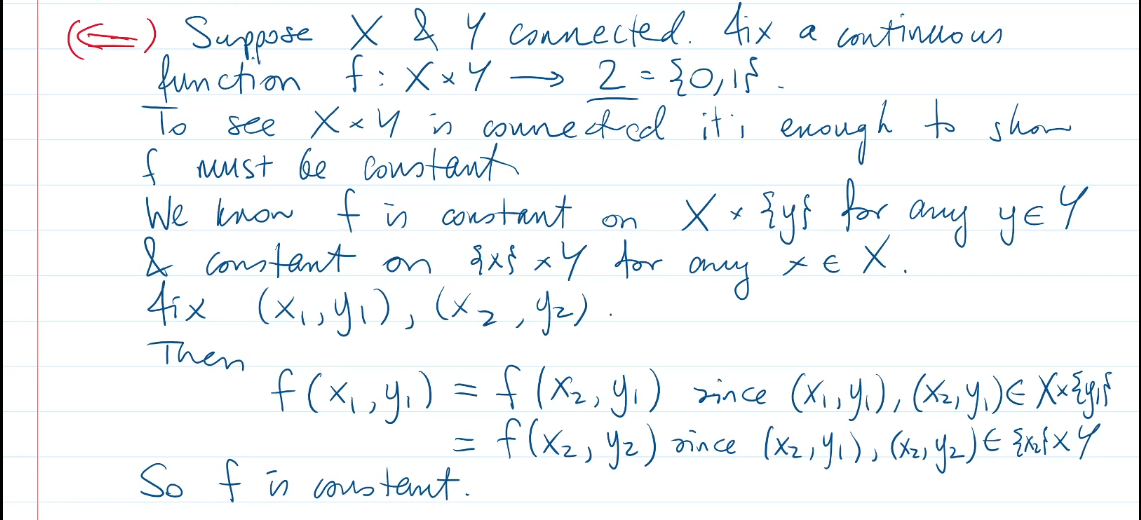 (⇐) Suppose X & Y connected. Fix a continuous
function f : X × Y → 2 = {0,1}.
To see X × Y is connected it's enough to show
f must be constant
We know f is constant on X × {y} for any y ∈ Y
& constant on {x} × Y for any x ∈ X.
Fix (x₁, y₁), (x₂, y₂).
Then
f(x₁, y₁) = f(x₂, y₁) since (x₁, y₁), (x₂, y₁) ∈ X × {y₁}
= f(x₂, y₂) since (x₂, y₁), (x₂, y₂) ∈ {x₂} × Y
So f is constant.